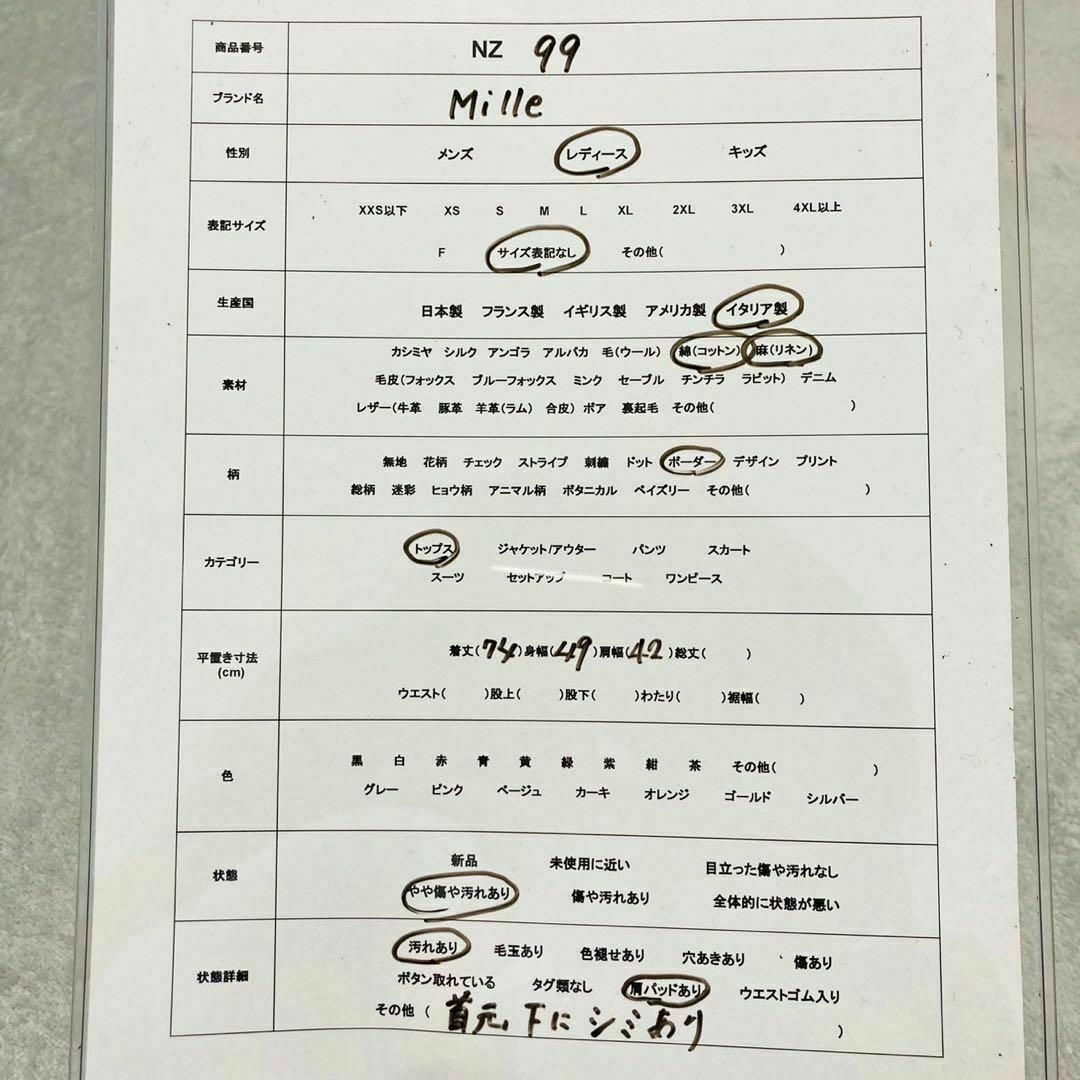 商品番号 NZ 99
ブランド名 Mille
性別 メンズ レディース キッズ
表記サイズ
XXS以下 XS S M L XL 2XL 3XL 4XL以上
F サイズ表記なし その他( )
生産国 日本製 フランス製 イギリス製 アメリカ製 イタリア製
素材
カシミヤ シルク アンゴラ アルパカ 毛(ウール) 綿(コットン) 麻(リネン)
毛皮(フォックス ブルーフォックス ミンク セーブル チンチラ ラビット) デニム
レザー(牛革 豚革 羊革(ラム) 合皮) ボア 裏起毛 その他( )
柄
無地 花柄 チェック ストライプ 刺繍 ドット ボーダー デザイン プリント
総柄 迷彩 ヒョウ柄 アニマル柄 ボタニカル ペイズリー その他( )
カテゴリー
トップス ジャケット/アウター パンツ スカート
スーツ セットアップ コート ワンピース
平置き寸法
(cm)
着丈(74)身幅(49)肩幅(42)総丈( )
ウエスト( )股上( )股下( )わたり( )裾幅( )
色
黒 白 赤 青 黄 緑 紫 紺 茶 その他( )
グレー ピンク ベージュ カーキ オレンジ ゴールド シルバー
状態
新品 未使用に近い 目立った傷や汚れなし
やや傷や汚れあり 傷や汚れあり 全体的に状態が悪い
状態詳細
汚れあり 毛玉あり 色褪せあり 穴あきあり 傷あり
ボタン取れている タグ類なし 肩パッドあり ウエストゴム入り
その他 ( 首元、下に シミあり )